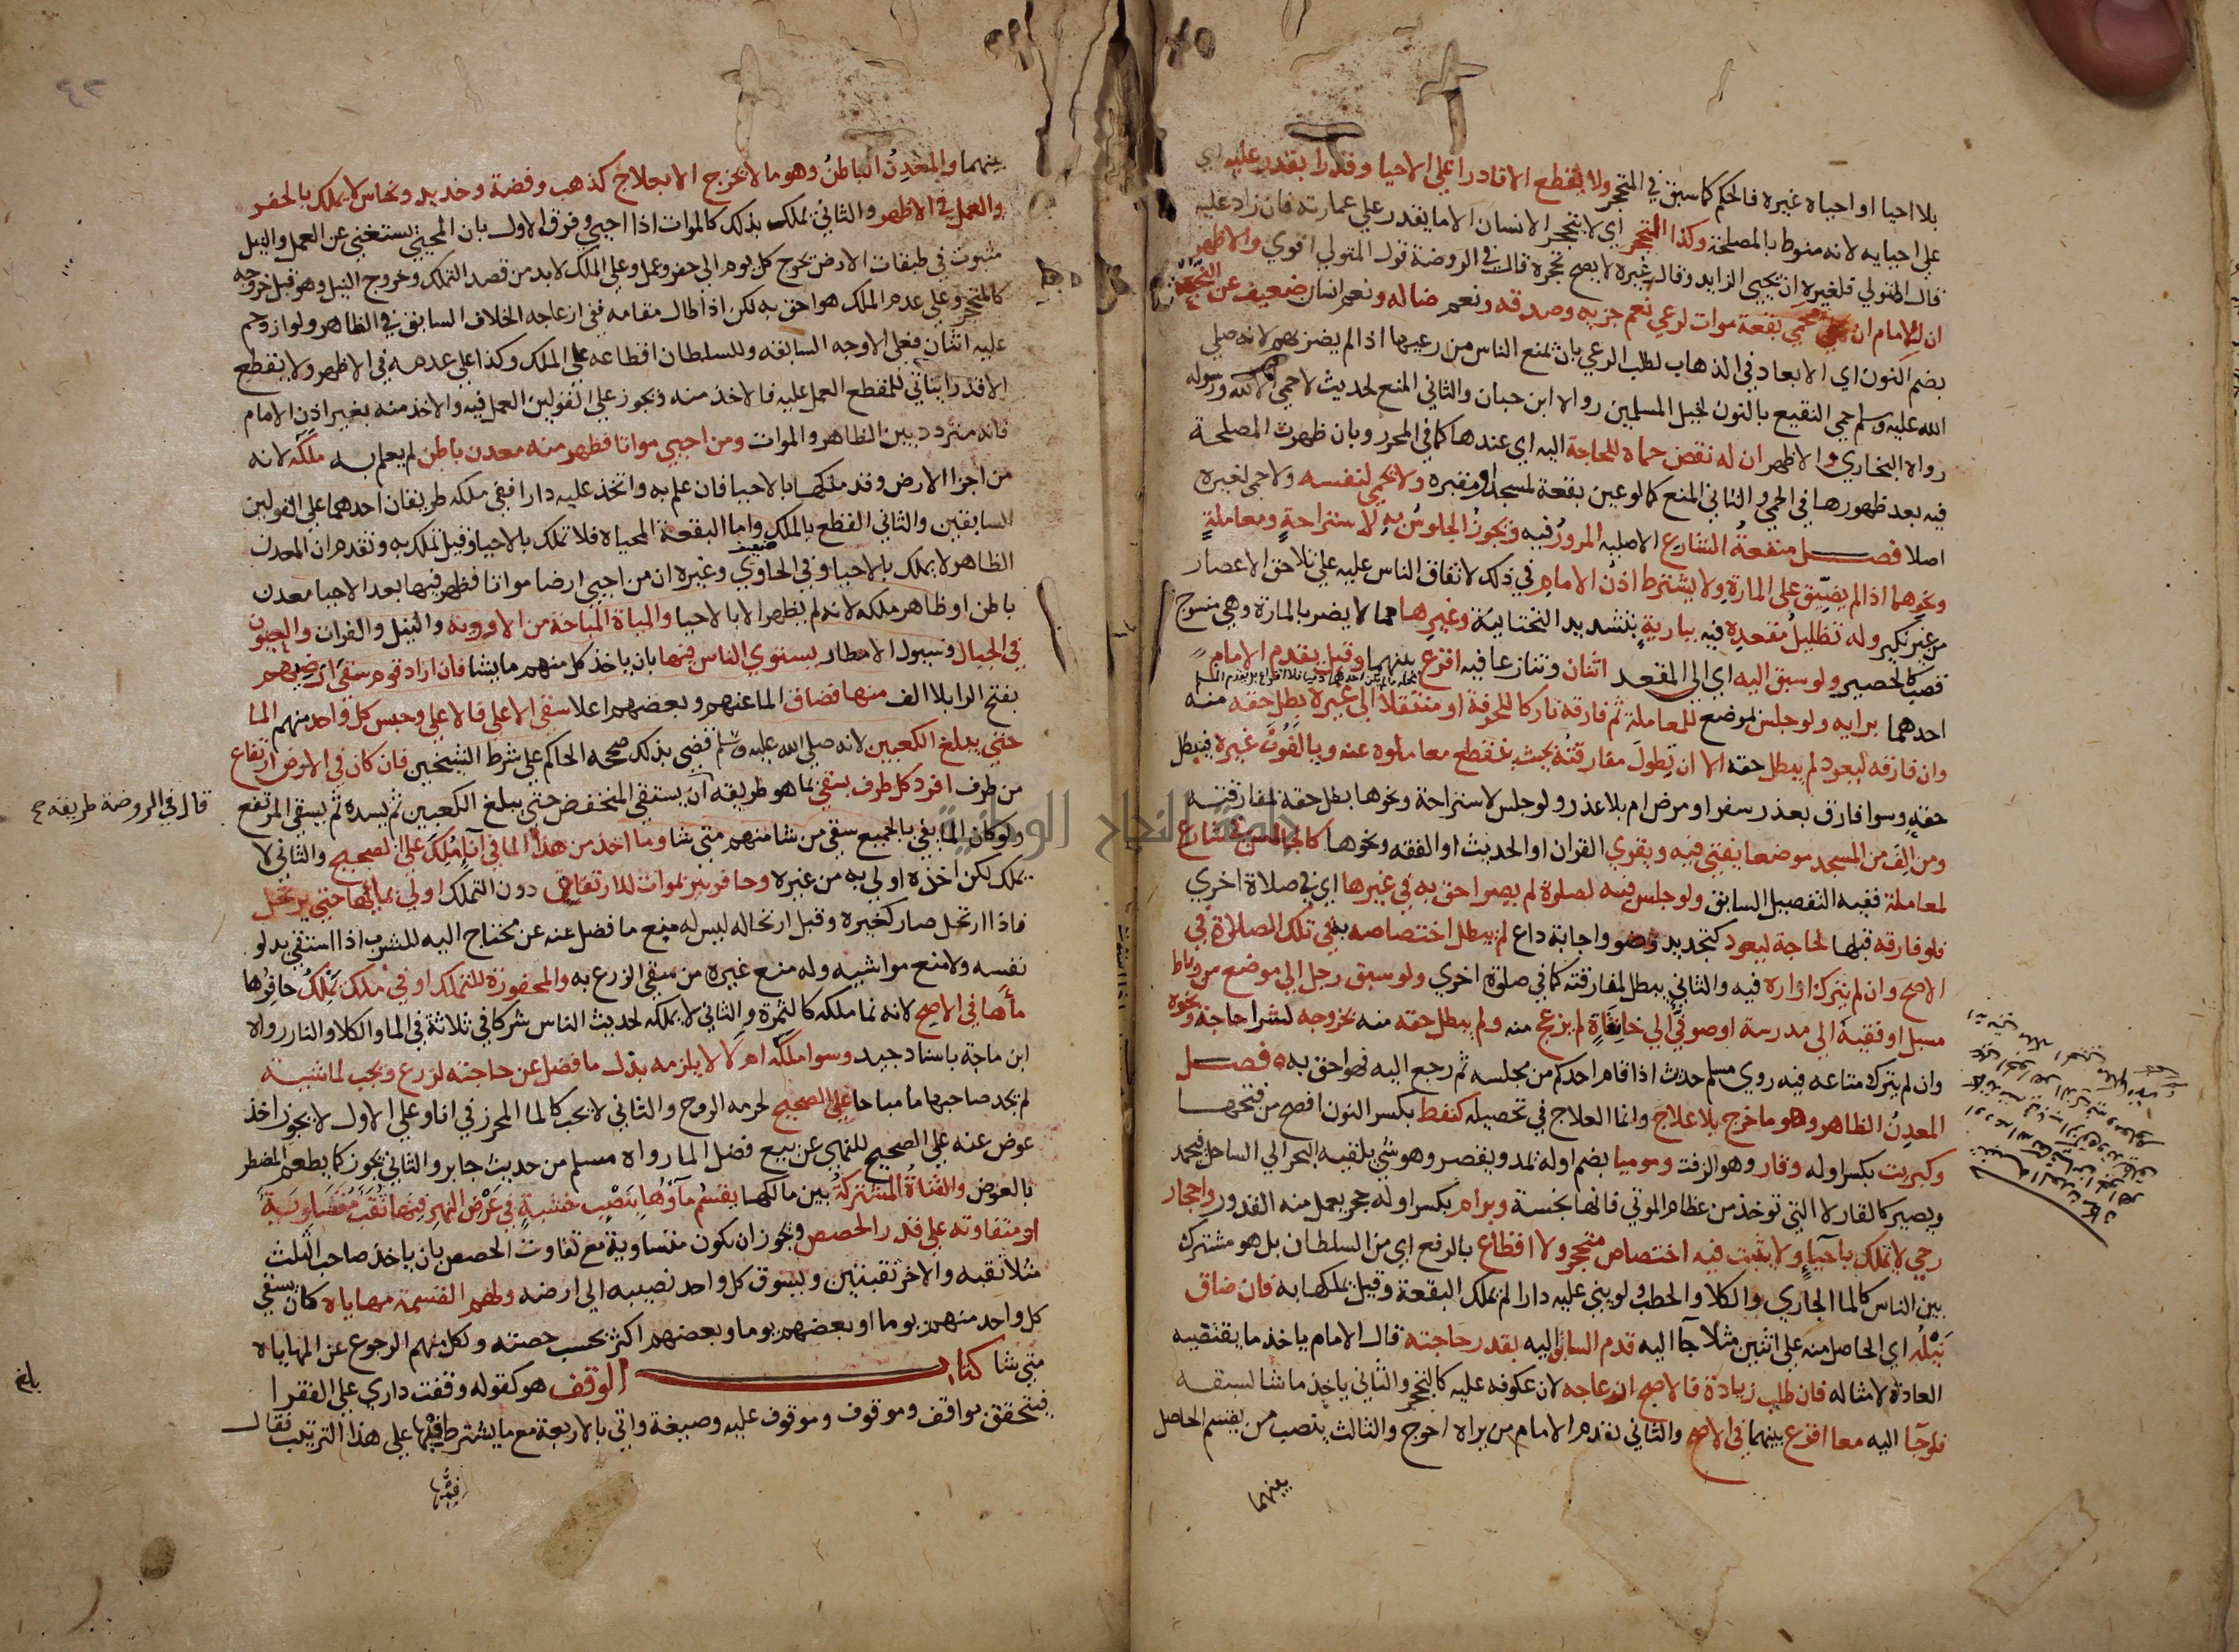 بلا احيا او احياه غيره فالحكم كما سبق في المتحجر ولا يقطع الا قادرا علي الاحيا وقدرا يقدر عليه اي
علي احيايه لانه منوط بالمصلحة وكذا المتحجر اي لا يتحجر الانسان الا ما يقدر علي عمارته فان زاد عليه
قال المتولي فلغيره ان يحيي الزايد وقال غيره لا يصح تحجره قال في الروضة قول المتولي اقوي والاظهر
ان للامام ان يحمي بقعة موات لرعي نعم جزيه وصدقه ونعم ضاله ونعم انسان ضعيف عن النجعة
بضم النون اي الابعاد في الذهاب لطلب الرعي بان يمنع الناس من رعيها اذا لم يضر بهم لانه صلي
الله عليه وسلم حمي النقيع بالنون لخيل المسلمين رواه ابن حبان والثاني المنع لحديث لا حمي الا لله ورسوله
رواه البخاري والاظهر ان له نقض حماه للحاجة اليه اي عندها كما في المحرر وبان ظهرت المصلحة
فيه بعد ظهورها في الحمي والثاني المنع كما لو عين بقعة لمسجد او مقبره ولا يحمي لنفسه ولا حمي لغيره
اصلا فصل منفعة الشارع الاصلية المرور فيه ويجوز الجلوس به لاستراحة ومعاملة
ونحوهما اذا لم يضيق علي المارة ولا يشترط اذن الامام في ذلك لاتفاق الناس عليه علي تلاحق الاعصار
من غير نكير وله تظليل مقعده فيه ببارية بتشديد التحتانية وغيرها مما لا يضر بالمارة وهي منسوج
قصب كالحصير ولو سبق اليه اي الي المقعد اثنان وتنازعا فيه اقرع بينهما وقيل يقدم الامام
احدهما برايه ولو جلس لموضع للمعاملة ثم فارقه تاركا للحرفة او منتقلا الي غيره بطل حقه منه
وان فارقه ليعود لم يبطل حقه الا ان تطول مفارقته بحيث ينقطع معاملوه عنه ويالفون غيره فيبطل
حقه وسوا فارق بعذر سفر او مرض ام بلا عذر ولو جلس لاستراحة ونحوها بطل حقه لمفارقته
ومن الف من المسجد موضعا يفتي فيه ويقري القران او الحديث او الفقه ونحوها كالجالس في شارع
لمعاملة ففيه التفصيل السابق ولو جلس فيه لصلوة لم يصر احق به في غيرها اي في صلاة اخري
فلو فارقه قبلها لحاجة ليعود كتجديد وضو واجابة داع لم يبطل اختصاصه به في تلك الصلاة في
الاصح وان لم يترك ازاره فيه والثاني يبطل لمفارقته كما في صلوة اخري ولو سبق رجل الي موضع من رباط
مسبل او فقيه الي مدرسة او صوفي الي خانقاة لم يزعج منه ولم يبطل حقه منه بخروجه لشرا حاجة ونحوه
وان لم يترك متاعه فيه روي مسلم حديث اذا قام احدكم من مجلسه ثم رجع اليه فهو احق به فصل
المعدن الظاهر وهو ما خرج بلا علاج وانما العلاج في تحصيله كنفط بكسر النون افصح من فتحها
وكبريت بكسر اوله وقار وهو الزفت وموميا بضم اوله يمد ويقصر وهو شي يلقيه البحر الي الساحل فيجمد
ويصير كالقار لا التي توخذ من عظام الموتي فانها نجسة وبرام بكسر اوله حجر يعمل منه القدور واحجار
رحي لا يملك باحياء ولا يثبت فيه اختصاص متحجر ولا اقطاع بالرفع اي من السلطان بل هو مشترك
بين الناس كالما الجاري والكلا والحطب ولو بني عليه دارا لم يملك البقعة وقيل يملكها به فان ضاق
نيله اي الحاصل منه علي اثنين مثلا جاا اليه قدم السابق اليه بقدر حاجته قال الامام ياخذ ما يقتضيه
العادة لامثاله فان طلب زيادة فالاصح ازعاجه لان عكوفه عليه كالتحجر والثاني ياخذ ما شا لسبقه
فلو جاا اليه معا اقرع بينهما في الاصح والثاني يقدم الامام من يراه احوج والثالث ينصب من يقسم الحاصل
بينهما
بينهما والمعدن الباطن وهو ما لا يخرج الا بعلاج كذهب وفضة وحديد ونحاس لا يملك بالحفر
والعمل في الاظهر والثاني يملك بذلك كالموات اذا احيي وفرق الاول بان المحيي يستغني عن العمل والنيل
مثبوت في طبقات الارض يخرج كل يوم الي حفر وعمل وعلي الملك لا بد من قصد التملك وخروج النيل وهو قبل خروجه
كالمتحجر وعلي عدم الملك هو احق به لكن اذا طال مقامه ففي ازعاجه الخلاف السابق في الظاهر ولو ازدحم
عليه اثنان فعلي الاوجه السابقه وللسلطان اقطاعه علي الملك وكذا علي عدمه في الاظهر ولا يقطع
الا قدرا يتاتي للمقطع العمل عليه فالاخذ منه ويجوز علي القولين العمل فيه والاخذ منه بغير اذن الامام
فانه متردد بين الظاهر والموات ومن احيي مواتا فظهر منه معدن باطن لم يعلم به ملكه لانه
من اجزا الارض وقد ملكها بالاحيا فان علم به واتخذ عليه دارا ففي ملكه طريقان احدهما علي القولين
السابقين والثاني القطع بالملك واما البقعة المحياة فلا تملك بالاحيا وقيل تملك به وتقدم ان المعدن
الظاهر لا يملك بالاحيا وفي الحاوي وغيره ان من احيي ارضا مواتا فظهر فيها بعد الاحيا معدن
باطن او ظاهر ملكه لانه لم يظهر الا بالاحيا والمياة المباحة من الاودية والنيل والفرات والعيون
في الجبال وسيول الامطار يستوي الناس فيها بان ياخذ كل منهم ما يشا فان اراد قوم سقي ارضيهم
بفتح الرا بلا الف منها فضاق الما عنهم وبعضهم اعلا سقي الاعلي فالاعلي وحبس كل واحد منهم الما
حتي يبلغ الكعبين لانه صلي الله عليه وسلم قضي بذلك صححه الحاكم علي شرط الشيخين فان كان في الارض ارتفاع
من طرف افرد كل طرف بسقي بما هو طريقه ان يستقي المنخفض حتي يبلغ الكعبين ثم يسده ثم يسقي المرتفع
قال في الروضة طريقه
ولو كان الما يفي بالجميع سقي من شا منهم متي شا وما اخذ من هذا الما في انا ملك علي الصحيح والثاني لا
يملك لكن اخذه اولي به من غيره وحافر بير بموات للارتفاق دون التملك اولي بمايها حتي يرتحل
فاذا ارتحل صار كغيره وقبل ارتحاله ليس له منع ما فضل عنه عن محتاج اليه للشرب اذا استقي بدلو
نفسه ولا منع مواشيه وله منع غيره من سقي الزرع به والمحفورة للتملك او في ملك يملك حافرها
ماها في الاصح لانه نما ملكه كالثمرة والثاني لا يملكه لحديث الناس شركا في ثلاثة في الما والكلا والنار رواه
ابن ماجة باسناد جيد وسوا ملكه ام لا لا يلزمه بذل ما فضل عن حاجته لزرع ويجب لماشية
لم يجد صاحبها ما مباحا علي الصحيح لحرمه الروح والثاني لا يجب كالما المحرز في انا وعلي الاول لا يجوز اخذ
عوض عنه علي الصحيح للنهي عن بيع فضل الما رواه مسلم من حديث جابر والثاني يجوز كما يطعم المضطر
بالعوض والقناة المشتركة بين مالكها يقسم ماوها بنصب خشبة في عرض النهر فيها ثقب متساوية
او متفاوته علي قدر الحصص ويجوز ان يكون متساوية مع تفاوت الحصص بان ياخذ صاحب الثلث
مثلا ثقبه والاخر ثقبتين ويسوق كل واحد نصيبه الي ارضه ولهم القسمة مهاياه كان يسقي
كل واحد منهم يوما او بعضهم يوما وبعضهم اكثر بحسب حصته ولكل منهم الرجوع عن المهاياه
متي شا كتاب الوقف هو كقوله وقفت داري علي الفقرا
بلغ
فيتحقق بواقف وموقوف وموقوف عليه وصيغة واتي بالاربعة مع ما يشترط فيها علي هذا الترتيب فقال
جامعة النجاح الوطنية